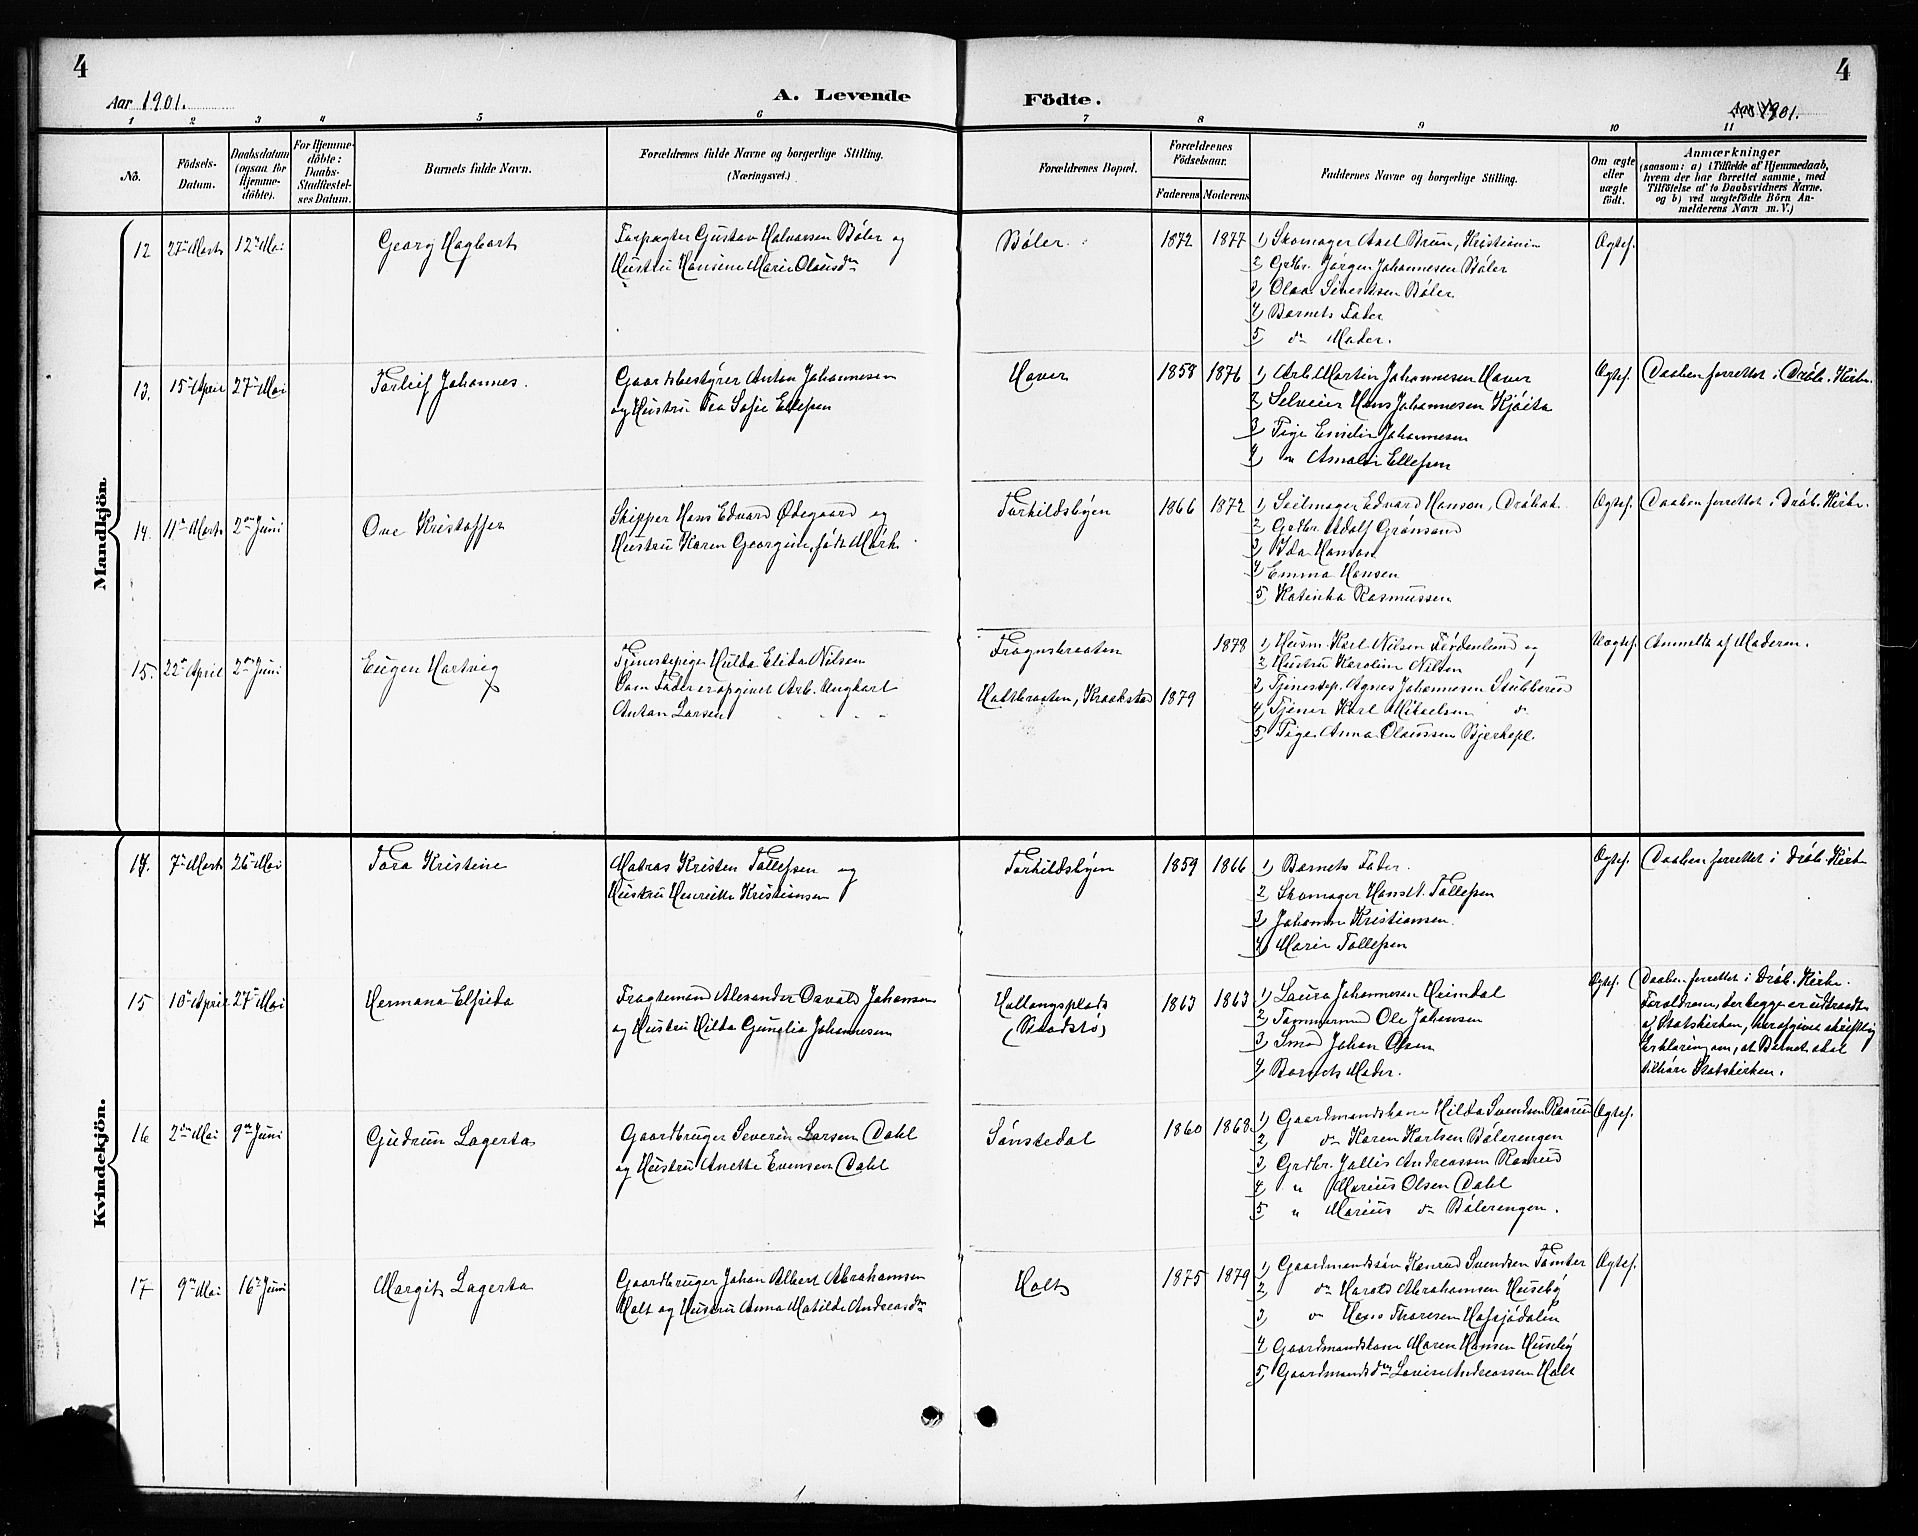 4
4
Aar 1901.
A. Levende
Födte.
Aar 1901.
1 2 3 4 5 6 7 8 9 10 11
No.
Födsels-Datum.
Daabsdatum (ogsaa for Hjemmedöbte).
For Hjemmedöbte: Daabs-Stadfæstelses Datum.
Barnets fulde Navn.
Forældrenes fulde Navne og borgerlige Stilling.
(Næringsvei.)
Forældrenes Bopæl.
Forældrenes Födselsaar.
Faderens
Moderens
Faddernes Navne og borgerlige Stilling.
Om ægte eller uægte födt.
Anmærkninger
(saasom: a) i Tilfælde af Hjemmedaab,
hvem der har forrettet samme, med
Tilföielse af to Daabsvidners Navne.
og b) ved uægtefödte Börn An-
melderens Navn m. V.)
Mandkjön.
12 27de Marts 12te Mai Georg Hagbart
Forpagter Gustav Halvorsen Bøler og
Hustru Hansine Marie Olausdtr
Bøler. 1872 1877
1) Skomager Axel Brun, Kristiania
2 Grdbr. Jørgen Johannesen Bøler
3) Olaa Sivertsen Bøler
4) Barnets Fader
5 do Moder.
Ægtef.
13. 15de April 27de Mai Torleif Johannes.
Gaardsbestyrer Anton Johannesen
og Hustru Tea Sofie Ellefsen
Haver 1858 1876
1) Arb. Martin Johannesen Haver
2 Selveier Hans Johannesen Kjøita
3) Pige Emilie Johannesen
4) do Amalie Ellefsen
Ægtef. Daaben forrettet i Drøb. Kirke.
14. 11te Marts 2den Juni Ove Kristoffer
Skipper Hans Edvard Ødegaard og
Hustru Karen Georgine, født Mørk.
Torkildsbyen 1866 1872
1) Seilmager Edvard Hanson, Drøbak.
2 Grdbr. Adolf Grønsand
3) Ida Hanson
4) Emma Hansen
5 Katinka Rasmussen
Ægtef. Daaben forrettet i Drøb. Kirke.
15. 22de April 2den Juni Eugen Hartvig
Tjenestepige Hulda Elida Nilsen
Som Fader er opgivet Arb. Ungkarl
Anton Larsen
Frognsbraaten 1878
Holtbraaten, Kraakstad 1879
1) Husm. Karl Nilsen Fjordenlund og
2 Hustru Karoline Nilsen
3) Tjenestep. Agnes Johannesen Stubberud
4) Tjener Karl Mikaelsen do
5) Pige Anna Olaussen Bjerkepl.
Uægtef. Anmeldt af Moderen.
Kvindekjön.
14. 7de Marts 26de Mai Tora Kristine
Matros Kristen Tollefsen og
Hustru Henriette Kristiansen
Torkildsbyen 1859 1866
1) Barnets Fader.
2 Skomager Hans M. Tollefsen
3) Johanne Kristiansen.
4) Marie Tollefsen
Ægtef. Daaben forrettet i Drøb. Kirke
15 10de April 27de Mai Hermana Elfrida
Fragtemand Alexander Osvald Johansen
og Hustru Hilda Gunelia Johannesen
Hallangsplads
1863 1863
1) Laura Johannesen Heimdal
2) Tømmermd Ole Johansen
3) Smed Johan Olsen
4) Barnets Moder.
Ægtef. Daaben forrettet i Drøb. Kirke.
Forældrene, der begge er udtraadt
af Statskirken, har afgivet skriftlig
Erklæring om, at Barnet skal
tilhøre Statskirken.
16 2den Mai 9de Juni Gudrun Lagerta
Gaardbruger Severin Larsen Dahl
og Hustru Anette Evensen Dahl
Sønstedal 1860 1868
1) Gaardmandskone Hilda Svendsen Raarud
2) do Karen Karlsen Bølerengen
3 Grdbr. Jallis Andreassen Raarud
4 " Marius Olsen Dahl
5 " Marius do Bølerengen.
Ægtef.
17 9de Mai 16de Juni Margit Lagerta
Gaardbruger Johan Albert Abrahamsen
Holt og Hustru Anna Matilde Andreasdtr
Holt 1875 1879
1) Gaardmandssøn Konrad Svendsen Tomter
2 do Harald Abrahamsen Huseby
3 do Hans Thoresen Hafsjødalen
4 Gaardmandskone Maren Hansen Huseby
5) Gaardmandsdtr Lovise Andreassen Holt
Ægtef.